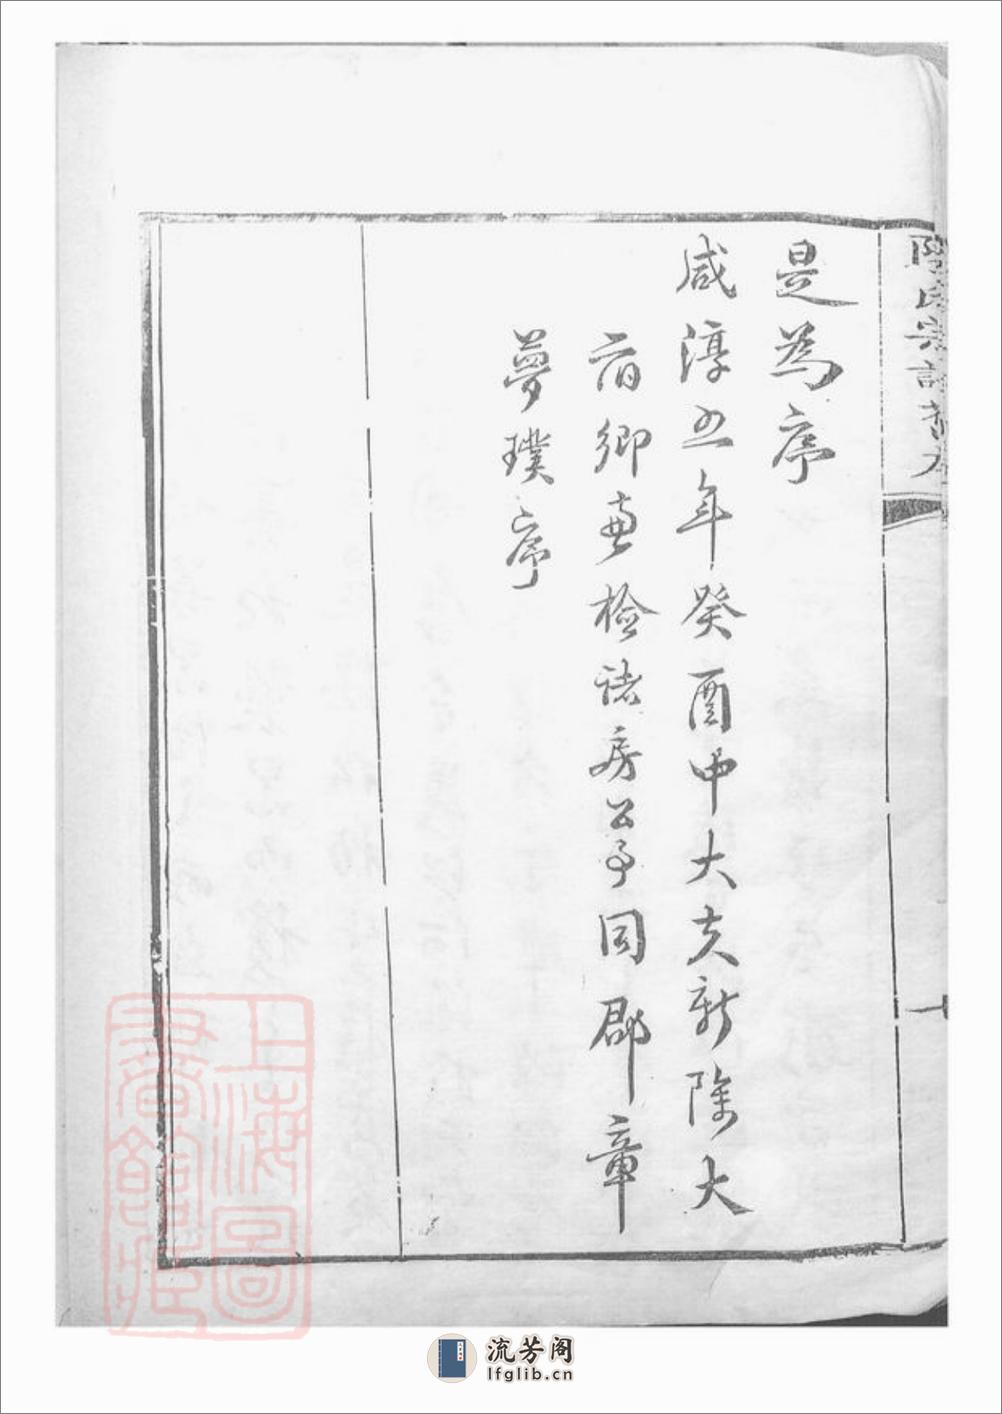 是為序
咸淳五年癸酉中大夫新除大
府卿兼檢諸房公事同郡章
夢璞序
氏宗譜
十
上海圖
書館藏
流芳阁
lfglib.cn